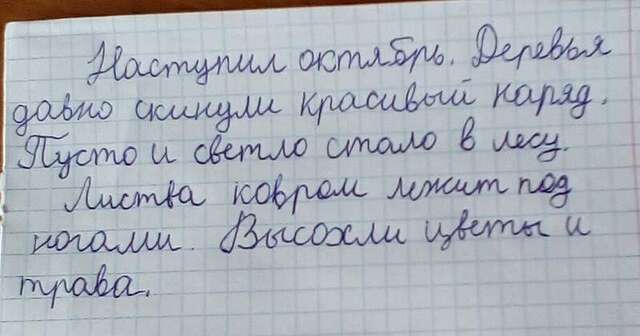 Наступил октябрь. Деревья
давно скинули красивый наряд.
Пусто и светло стало в лесу.
Листва ковром лежит под
ногами. Высохли цветы и
трава.